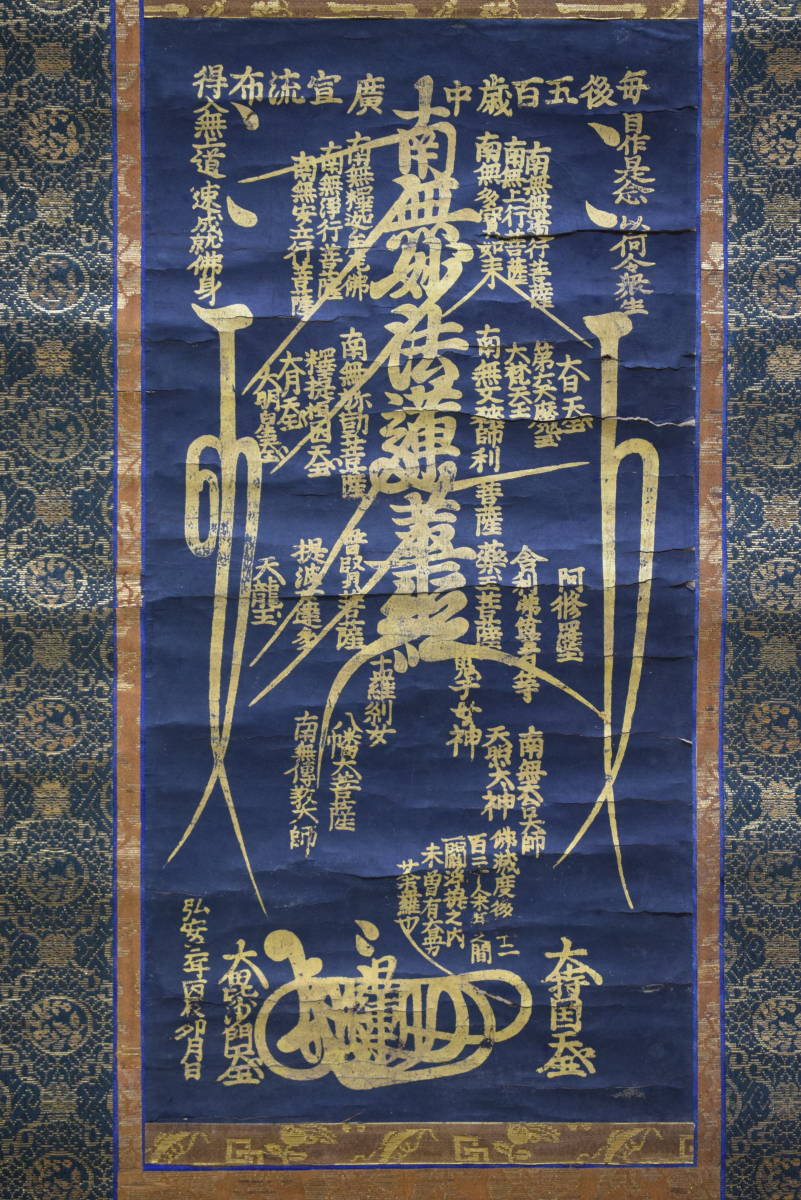 後五百歳中廣宣流布
毎自作是念以何令衆生
得入無上道速成就佛身
南無妙法蓮華経
南無無邊行菩薩
南無上行菩薩
南無多寶如来
南無釋迦牟尼佛
南無淨行菩薩
南無安立行菩薩
大日天王
第六天魔王
大梵天王
南無文殊師利菩薩
南無弥勒菩薩
釋提桓因大王
大月天王
大明星天王
阿修羅王
舎利弗尊者等
薬王菩薩
普賢菩薩
提波達多
天龍王
鬼子母神
十羅刹女
南無天台大師
天照大神
八幡大菩薩
南無傳教大師
佛滅度後二千二
百二十余年之間
一閻浮提之内
未曾有大曼
荼羅也
大持国天王
日蓮
大毘沙門天王
弘安三年
卯月日